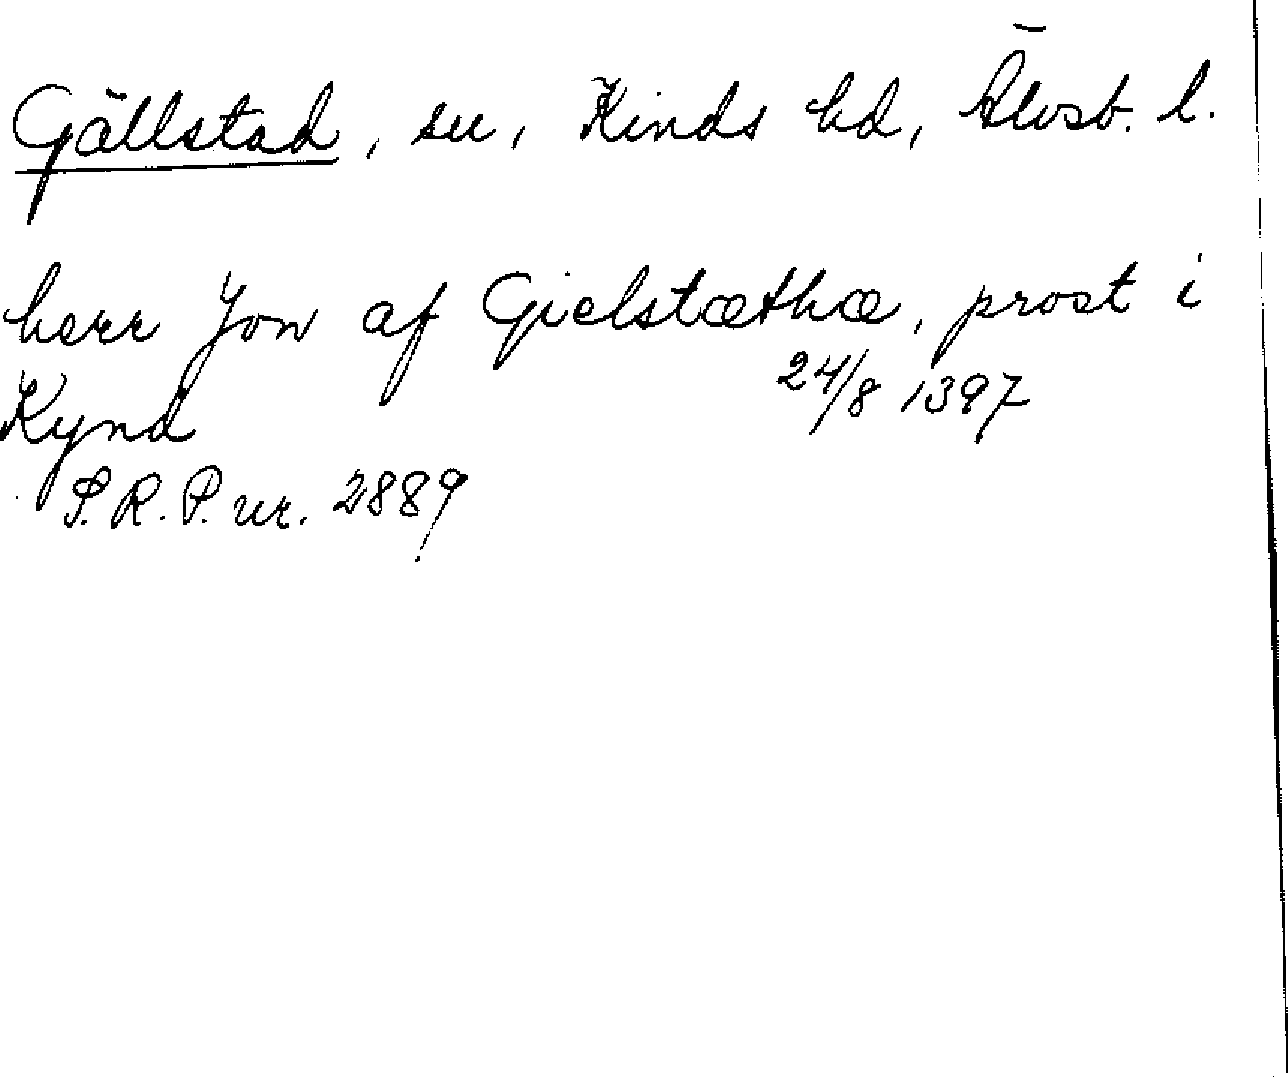 Gällstad, sn, Kinds hd, Älvsb. l.
herr Jon af Gielstæthæ, prost i
Kynd 24/8 1397
S.R.P. nr. 2889